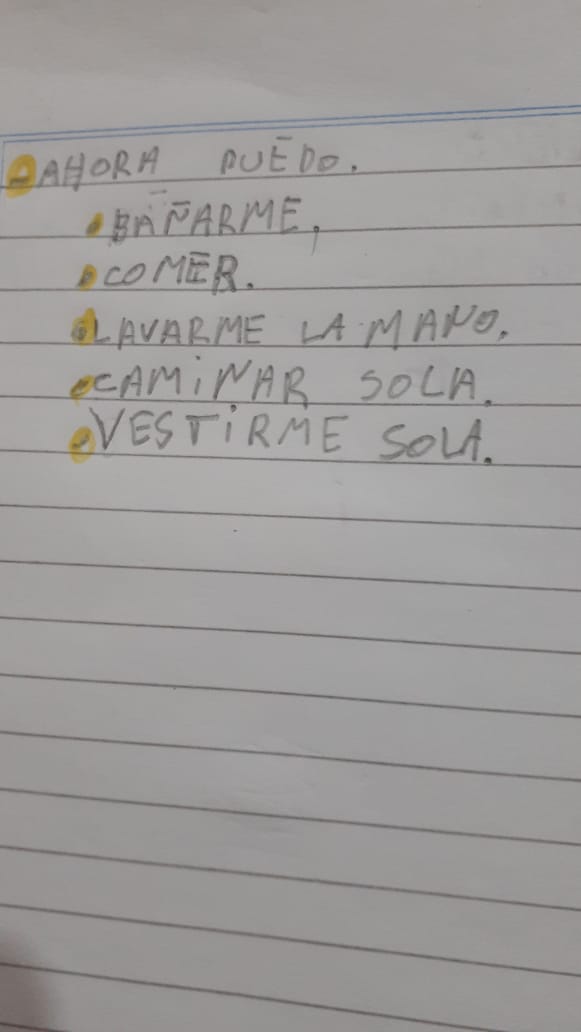 -AHORA PUEDO.
•BAÑARME,
•COMER.
•LAVARME LA MANO.
•CAMINAR SOLA.
•VESTIRME SOLA.